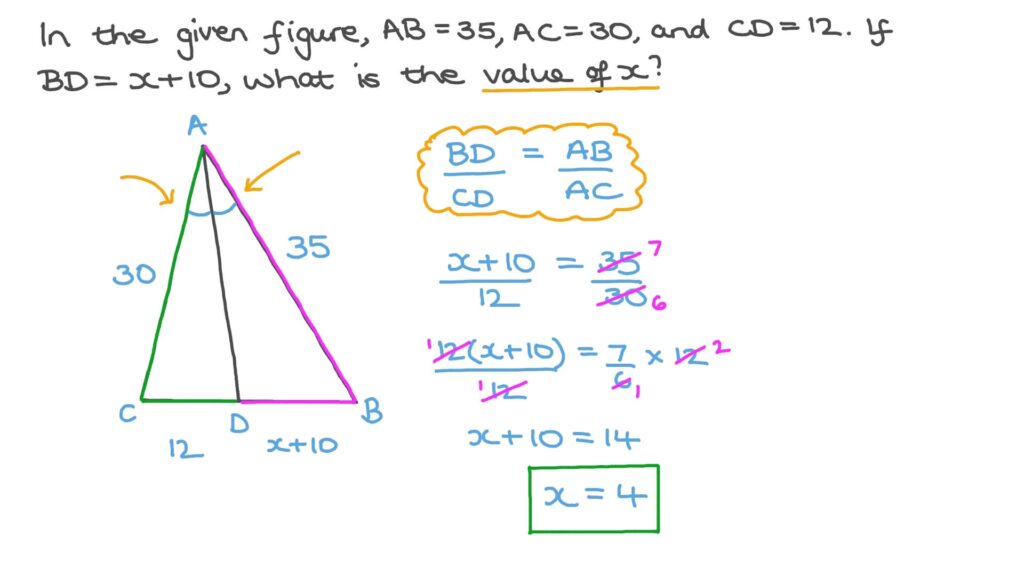 In the given figure, AB = 35, AC = 30, and CD = 12. If
BD = x+10, what is the value of x?
A
BD = AB
CD AC
30
35
x+10 = 35 7
12 30 6
1 12(x+10) = 7 × 12 2
1 12 6 1
C
D
B
12
x+10
x+10 = 14
x = 4